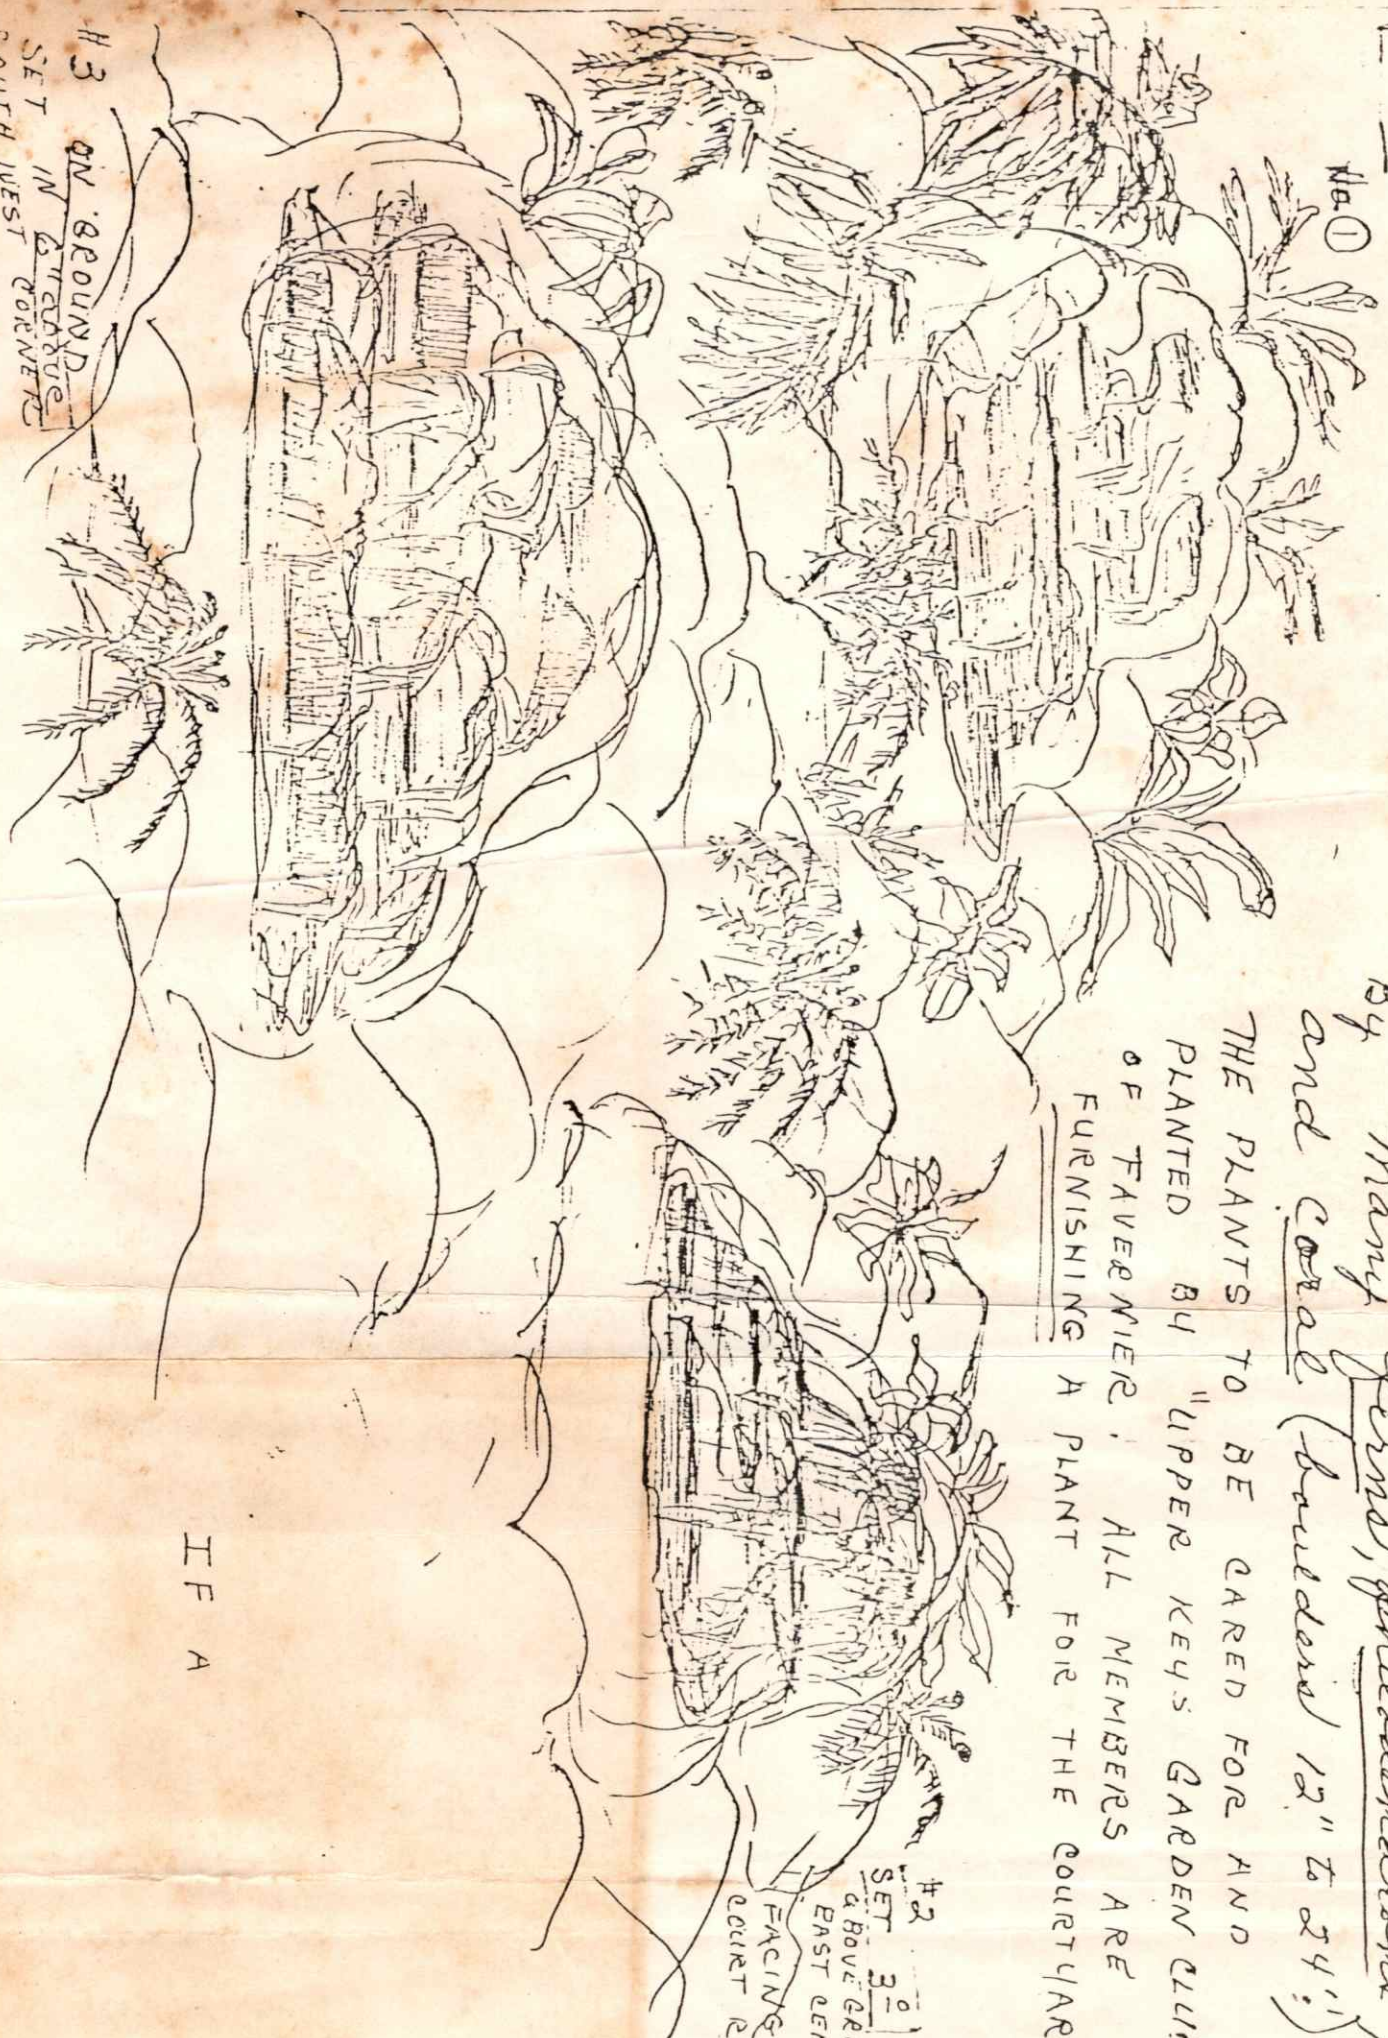 No. ①
By many ferns, philodendrons
and Coral (boulders 12" to 24")
THE PLANTS TO BE CARED FOR AND
PLANTED BY "UPPER KEYS GARDEN CLU
OF TAVERNIER. ALL MEMBERS ARE
FURNISHING A PLANT FOR THE COURTYAR
#2
SET 3º
ABOVE GR
EAST CE
FACING
COURT R
#3 ON GROUND
SET IN 6" above
SOUTH WEST CORNER
IF A